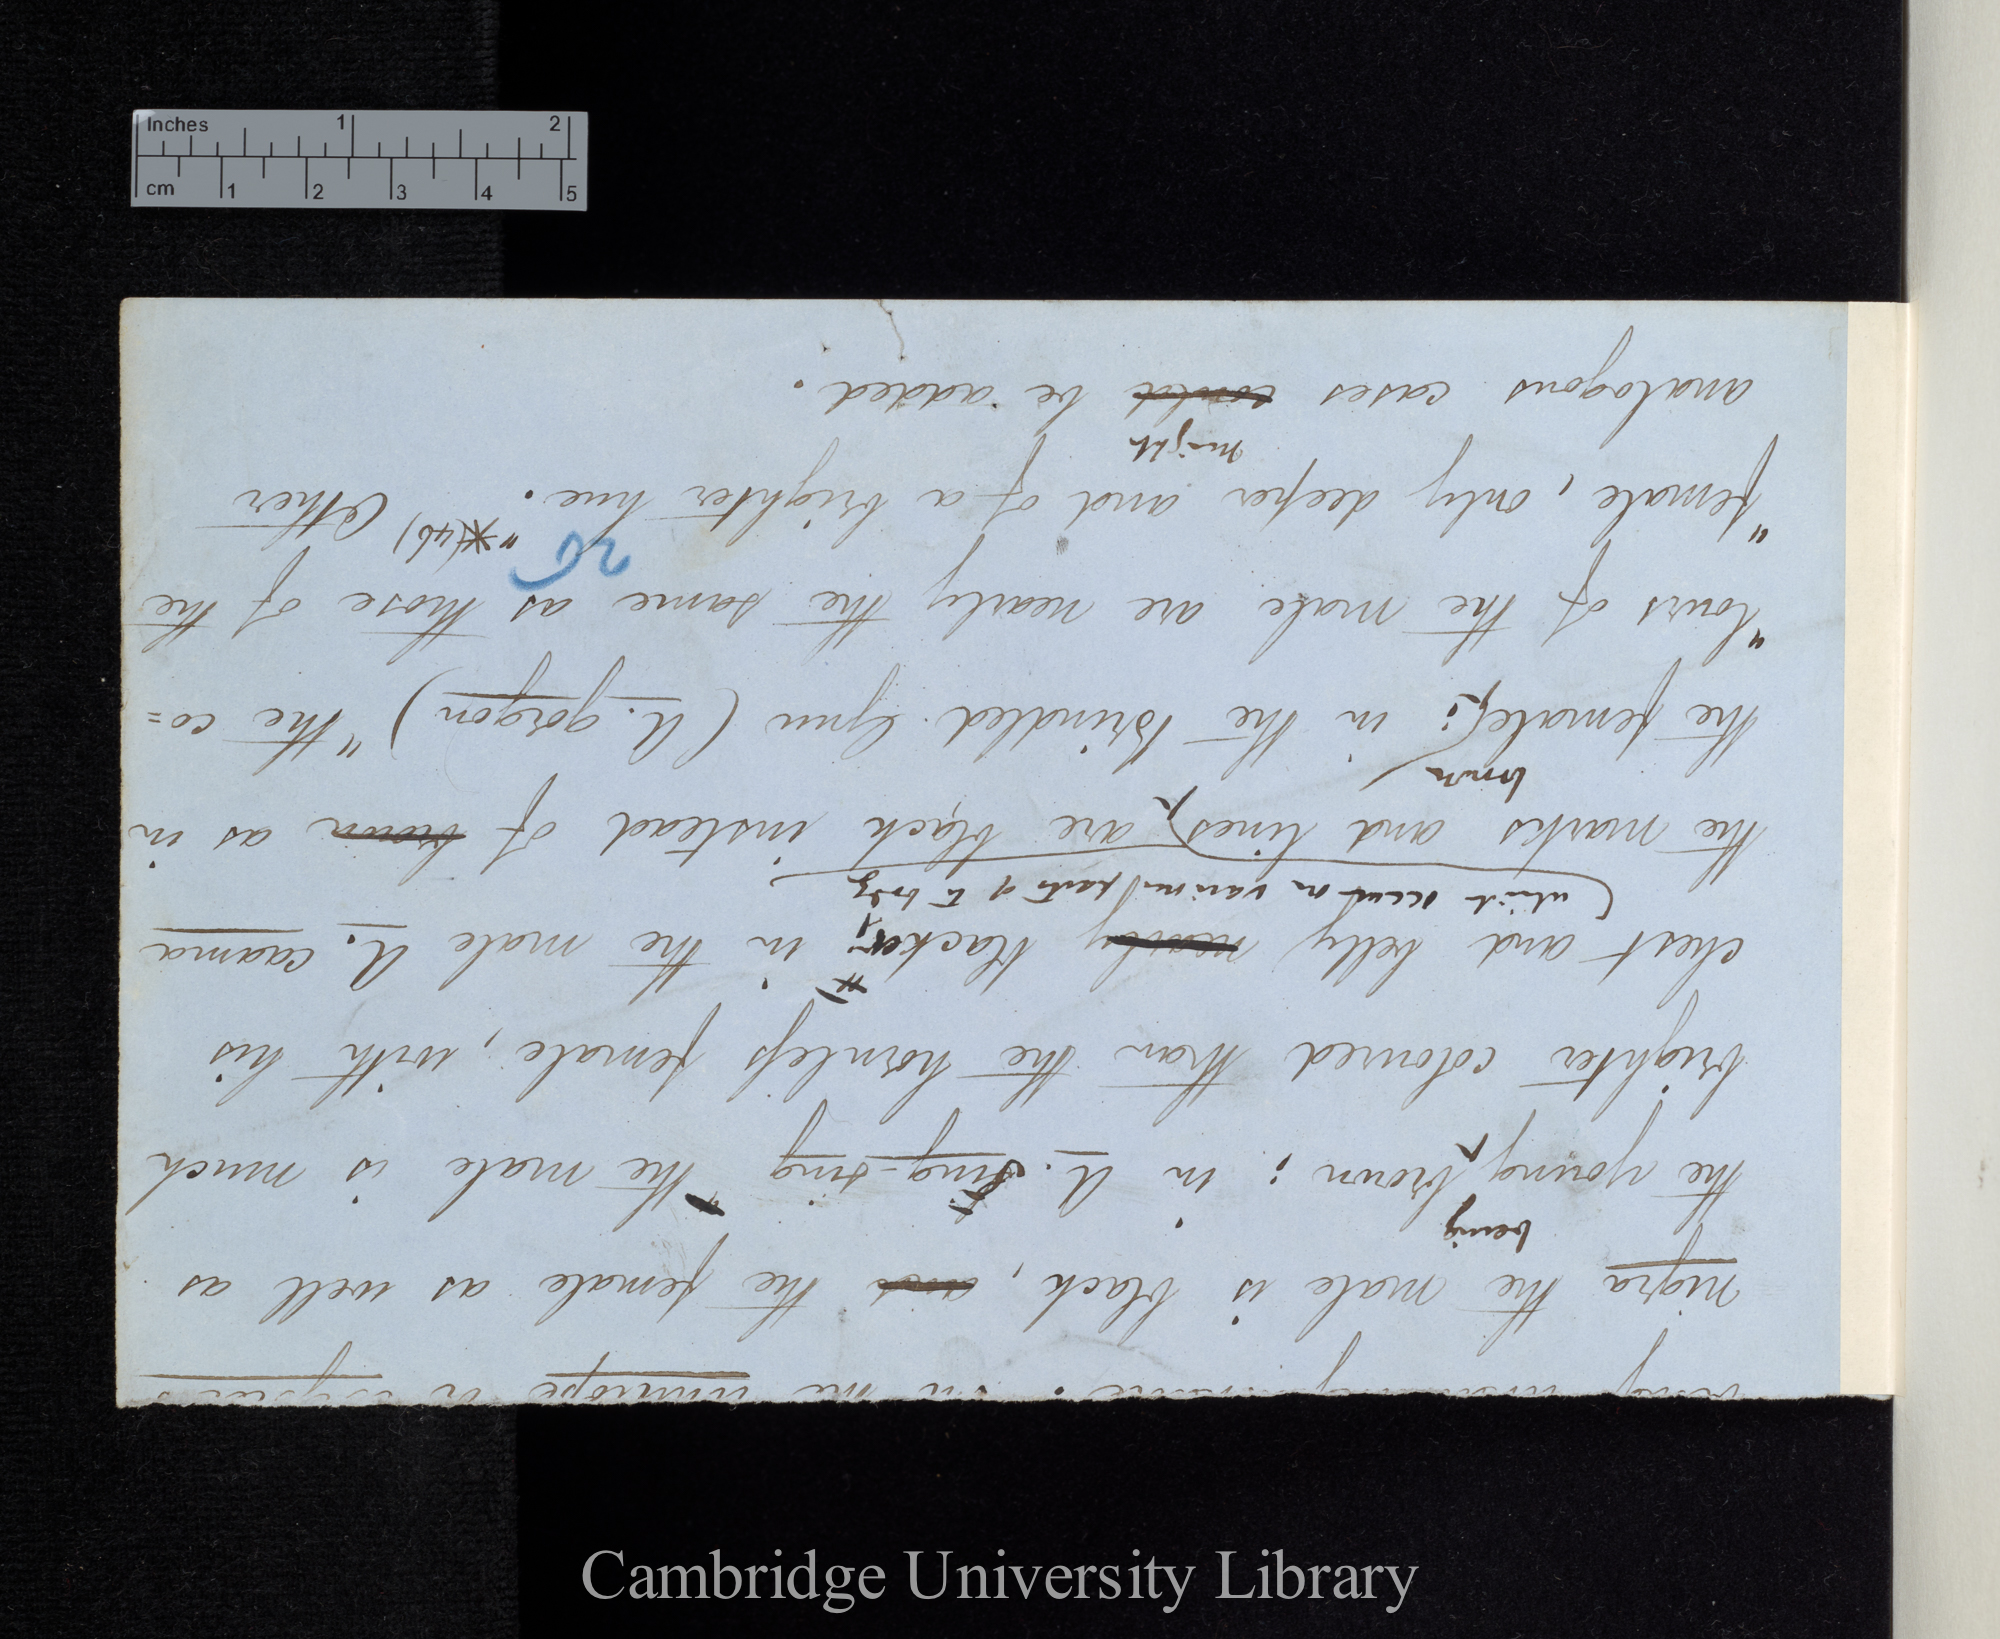 Inches 1 2
cm 1 2 3 4 5
nigra the male is black, and the female as well as
being
the young brown; in A. Sing-sing the male is much
brighter coloured than the hornless female, with his
chest and belly nearly blacker; in the male A. caama
(which occur on various parts of body
the marks and lines, are black instead of brown as in
brown
the female; in the Brindled Gnu (A. gorgon) "the co=
"lours of the male are nearly the same as those of the
"female, only deeper and of a brighter hue." *(46) Other
26
might
analogous cases could be added.
Cambridge University Library